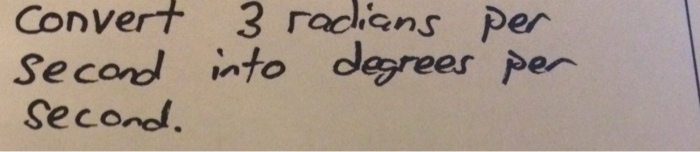 Convert 3 radians per
second into degrees per
second.